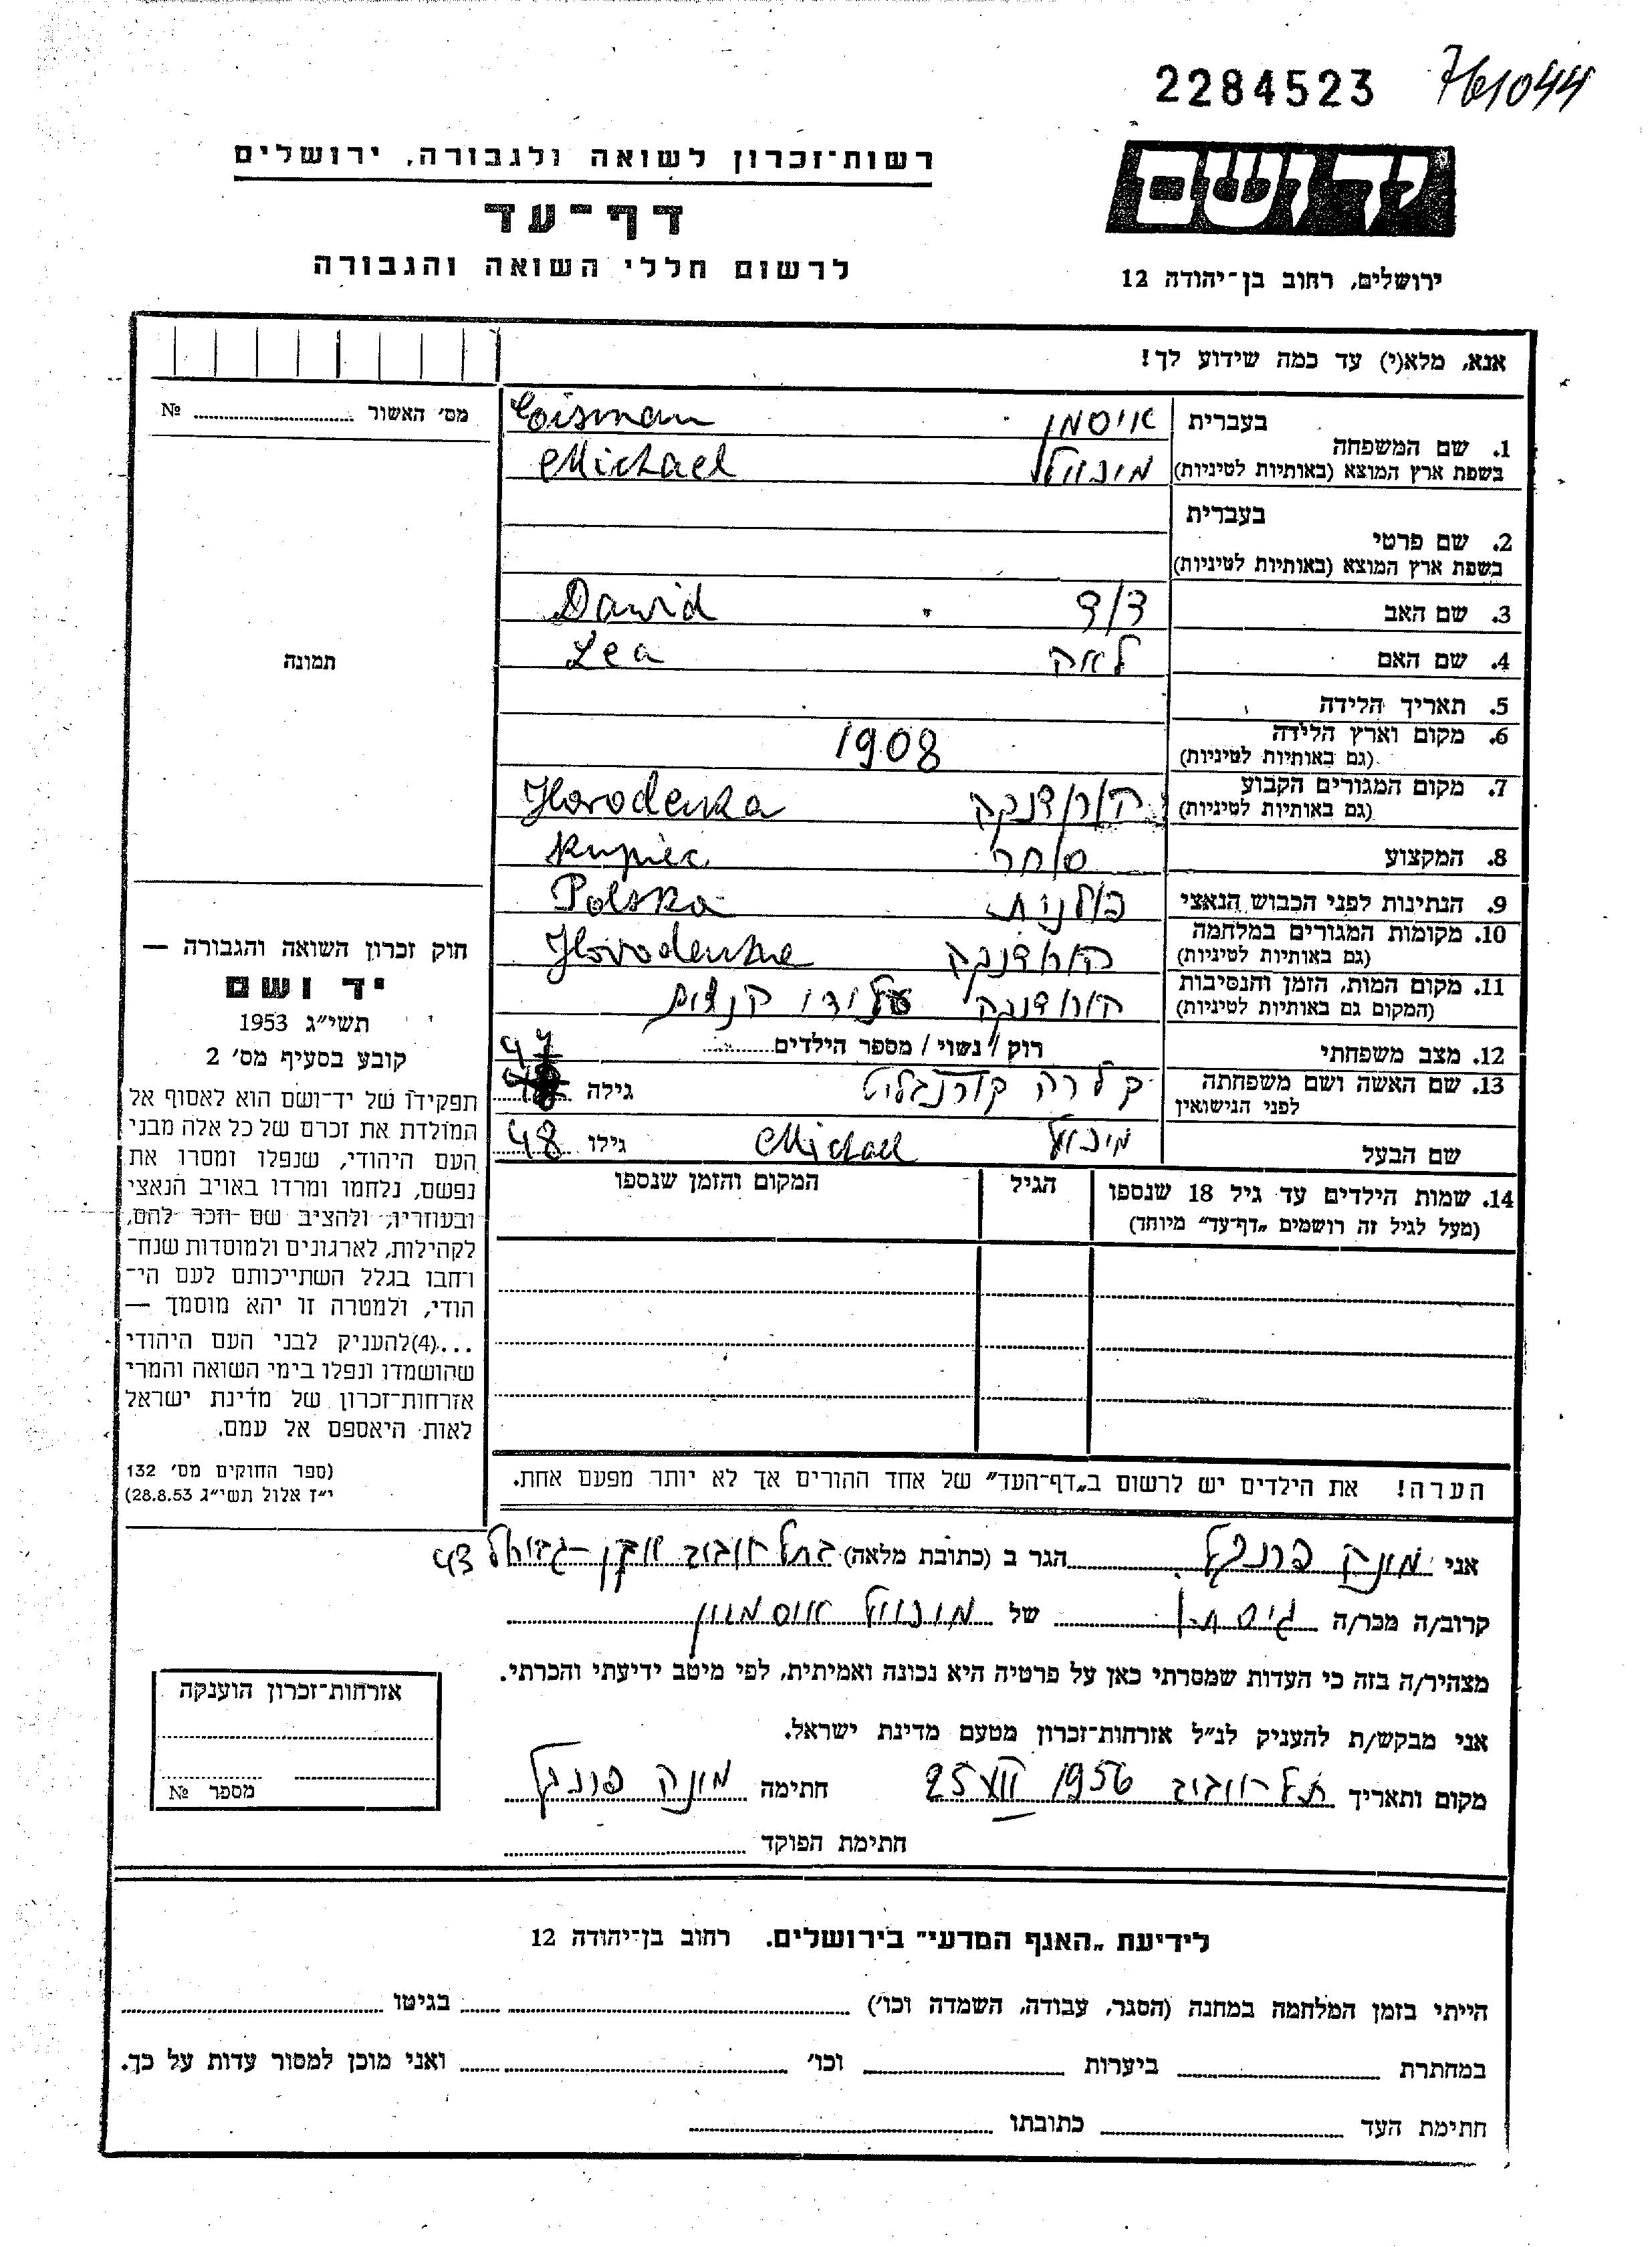 2284523 761044
יד ושם
ירושלים, רחוב בן־יהודה 12
רשות־זכרון לשואה ולגבורה, ירושלים
דף־עד
לרשום חללי השואה והגבורה
אנא, מלא(י) עד כמה שידוע לך!
מס׳ האשור № ..........
תמונה
1. שם המשפחה
בעברית איסמן Eisman
בשפת ארץ המוצא (באותיות לטיניות) מיכאל Michael
2. שם פרטי
בעברית
בשפת ארץ המוצא (באותיות לטיניות)
3. שם האב דוד Dawid
4. שם האם לאה Lea
5. תאריך הלידה
6. מקום וארץ הלידה 1908
(גם באותיות לטיניות)
7. מקום המגורים הקבוע הורודנקה Horodenka
(גם באותיות לטיניות)
8. המקצוע סוחר Kupiec
9. הנתינות לפני הכבוש הנאצי פולנית Polska
10. מקומות המגורים במלחמה הורודנקה Horodenka
(גם באותיות לטיניות)
11. מקום המות, הזמן והנסיבות הורודנקה
(המקום גם באותיות לטיניות)
12. מצב משפחתי רוק / נשוי / מספר הילדים ..........
13. שם האשה ושם משפחתה קלרה גילה 47
לפני הנישואין
שם הבעל מיכאל Michael גילו 48
14. שמות הילדים עד גיל 18 שנספו הגיל המקום והזמן שנספו
(מעל לגיל זה רושמים „דף־עד״ מיוחד)
הערה! את הילדים יש לרשום ב„דף־העד״ של אחד ההורים אך לא יותר מפעם אחת.
חוק זכרון השואה והגבורה —
יד ושם
תשי״ג 1953
קובע בסעיף מס׳ 2
תפקידו של יד־ושם הוא לאסוף אל
המולדת את זכרם של כל אלה מבני
העם היהודי, שנפלו ומסרו את
נפשם, נלחמו ומרדו באויב הנאצי
ובעוזריו, ולהציב שם וזכר להם,
לקהילות, לארגונים ולמוסדות שנח־
רחבו בגלל השתייכותם לעם הי־
הודי, ולמטרה זו יהא מוסמך —
...(4)להעניק לבני העם היהודי
שהושמדו ונפלו בימי השואה והמרי
אזרחות־זכרון של מדינת ישראל
לאות היאספם אל עמם.
(ספר החוקים מס׳ 132
י״ז אלול תשי״ג 28.8.53)
אני מונק פרנקל הגר ב (כתובת מלאה) בתל אביב אבן-גבירול 43
קרוב/ה מכר/ה גיסתו של מיכאל איסמן
מצהיר/ה בזה כי העדות שמסרתי כאן על פרטיה היא נכונה ואמיתית, לפי מיטב ידיעתי והכרתי.
אני מבקש/ת להעניק לנ״ל אזרחות־זכרון מטעם מדינת ישראל.
מקום ותאריך תל-אביב 25 XII 1956 חתימה מונק פרנקל
חתימת הפוקד ..........
אזרחות־זכרון הוענקה
מספר №
לידיעת „האגף המדעי״ בירושלים. רחוב בן־יהודה 12
הייתי בזמן המלחמה במחנה (הסגר, עבודה, השמדה וכו׳) .......... בגיטו ..........
במחתרת .......... ביערות .......... וכו׳ .......... ואני מוכן למסור עדות על כך.
חתימת העד .......... כתובתו ..........